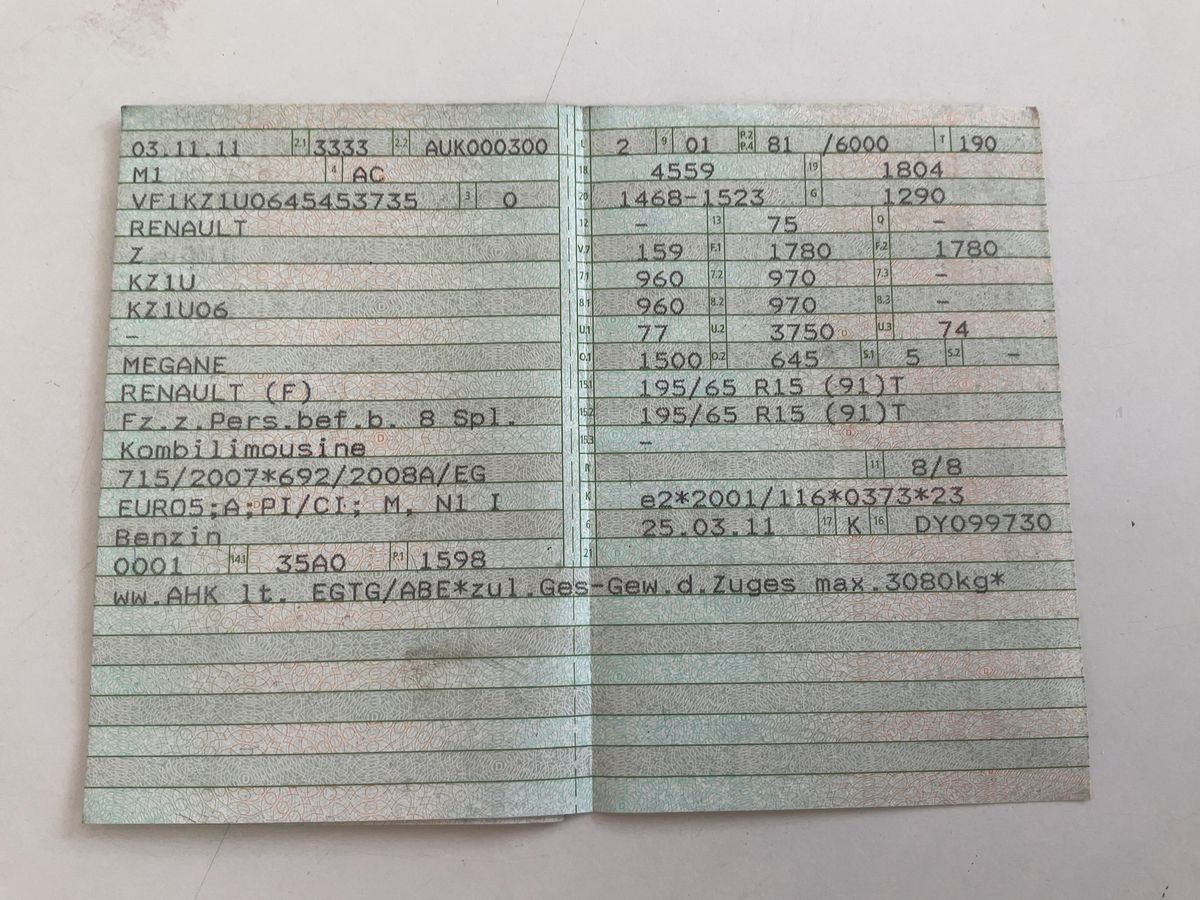 03.11.11 2.1 3333 2.2 AUK000300 L 2 9 01 P.2 P.4 81 /6000 T 190
M1 4 AC 18 4559 19 1804
VF1KZ1U0645453735 3 0 20 1468-1523 G 1290
RENAULT 12 – 13 75 Q –
Z V.7 159 F.1 1780 F.2 1780
KZ1U 7.1 960 7.2 970 7.3 –
KZ1U06 8.1 960 8.2 970 8.3 –
– U.1 77 U.2 3750 U.3 74
MEGANE O.1 1500 O.2 645 S.1 5 S.2 –
RENAULT (F) 15.1 195/65 R15 (91)T
Fz.z.Pers.bef.b. 8 Spl. 15.2 195/65 R15 (91)T
Kombilimousine 15.3 –
715/2007*692/2008A/EG R 11 8/8
EURO5;A;PI/CI; M, N1 I K e2*2001/116*0373*23
Benzin 6 25.03.11 17 K 16 DY099730
0001 14.1 35A0 P.1 1598 21
ww.AHK lt. EGTG/ABE*zul.Ges-Gew.d.Zuges max.3080kg*